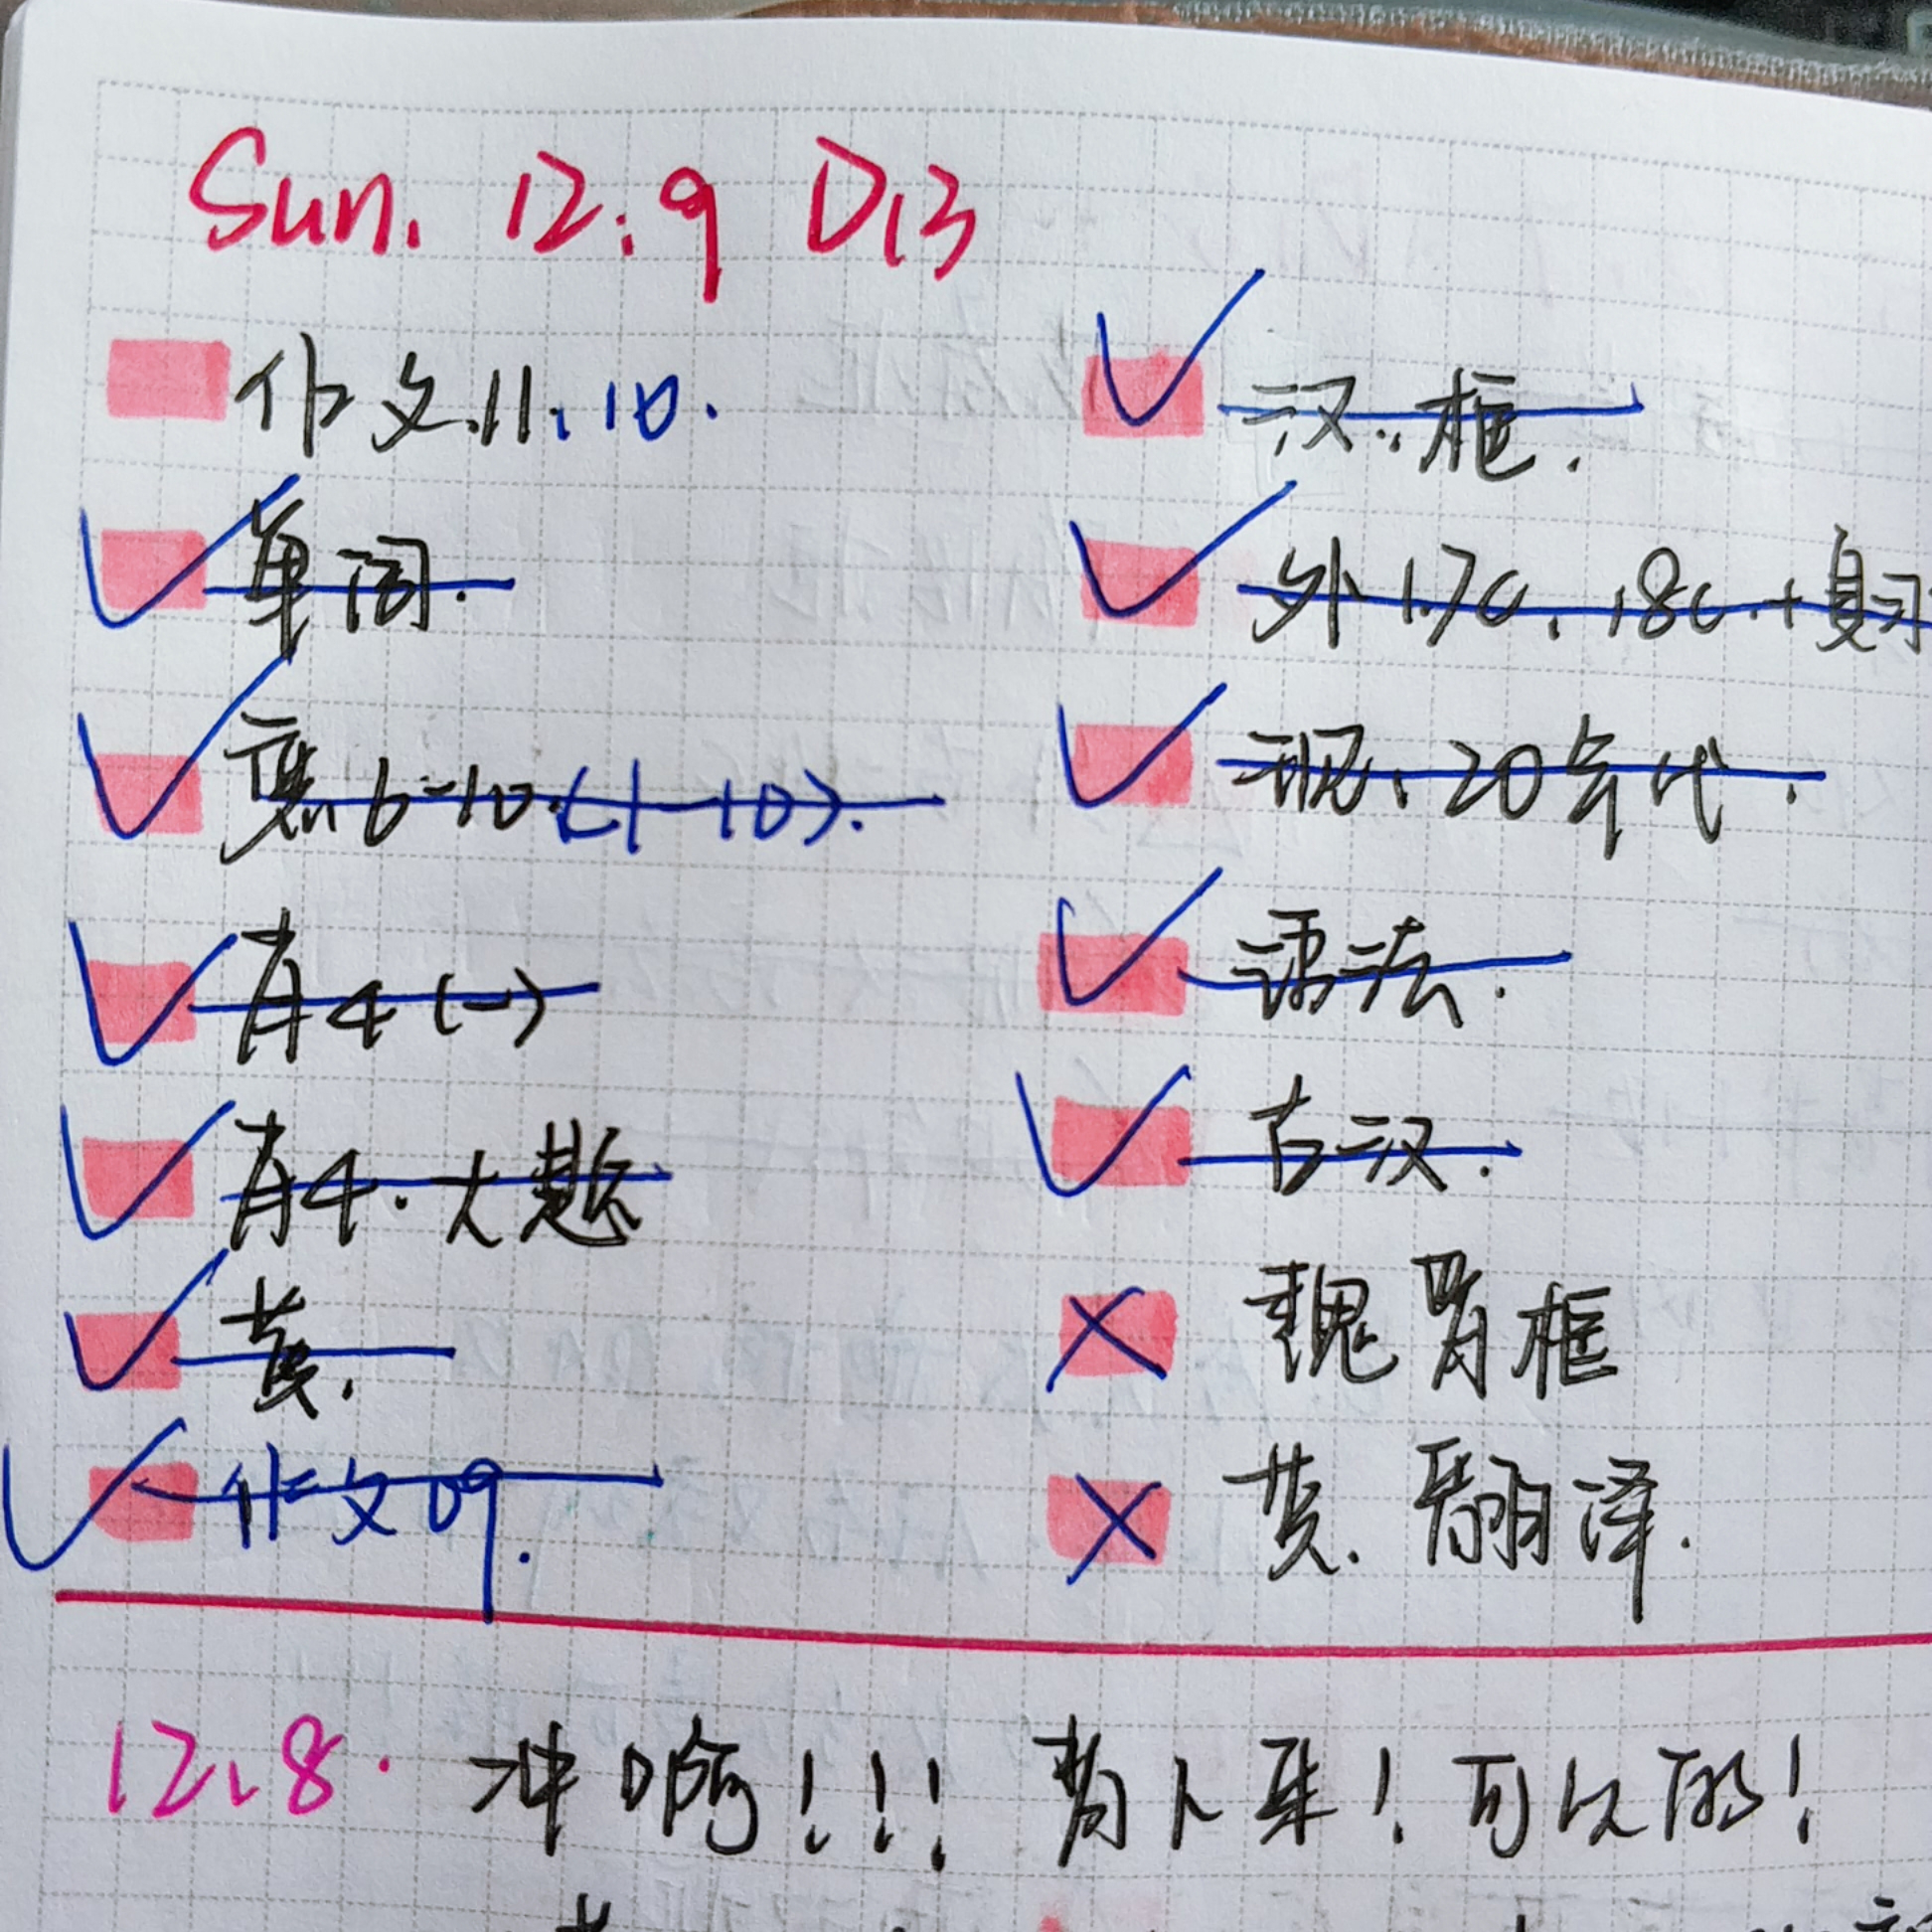 Sun. 12.9 D13
作文.11.10.
单词.
6-10.(1-10).
肖4(一)
肖4.大题
黄.
作文09.
汉.框.
外17C.18C.+复习
现.20年代.
语法.
古汉.
魏晋框
黄.翻译.
12.8. 冲啊!!! 背下来!可以的!